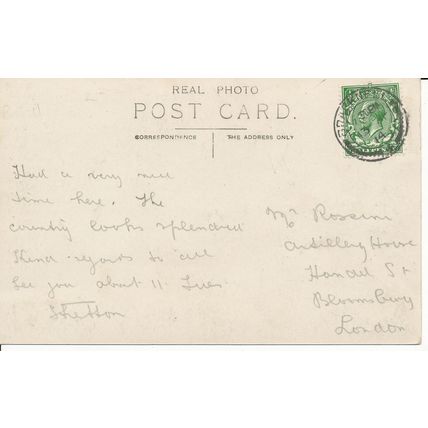 REAL PHOTO
POST CARD.
CORRESPONDENCE
THE ADDRESS ONLY
Had a very nice
time here. The
country looks splendid
Kind regards to all
See you about 11. Tues
Mr Rossini
Artillery House
Handel St
Bloomsbury
London